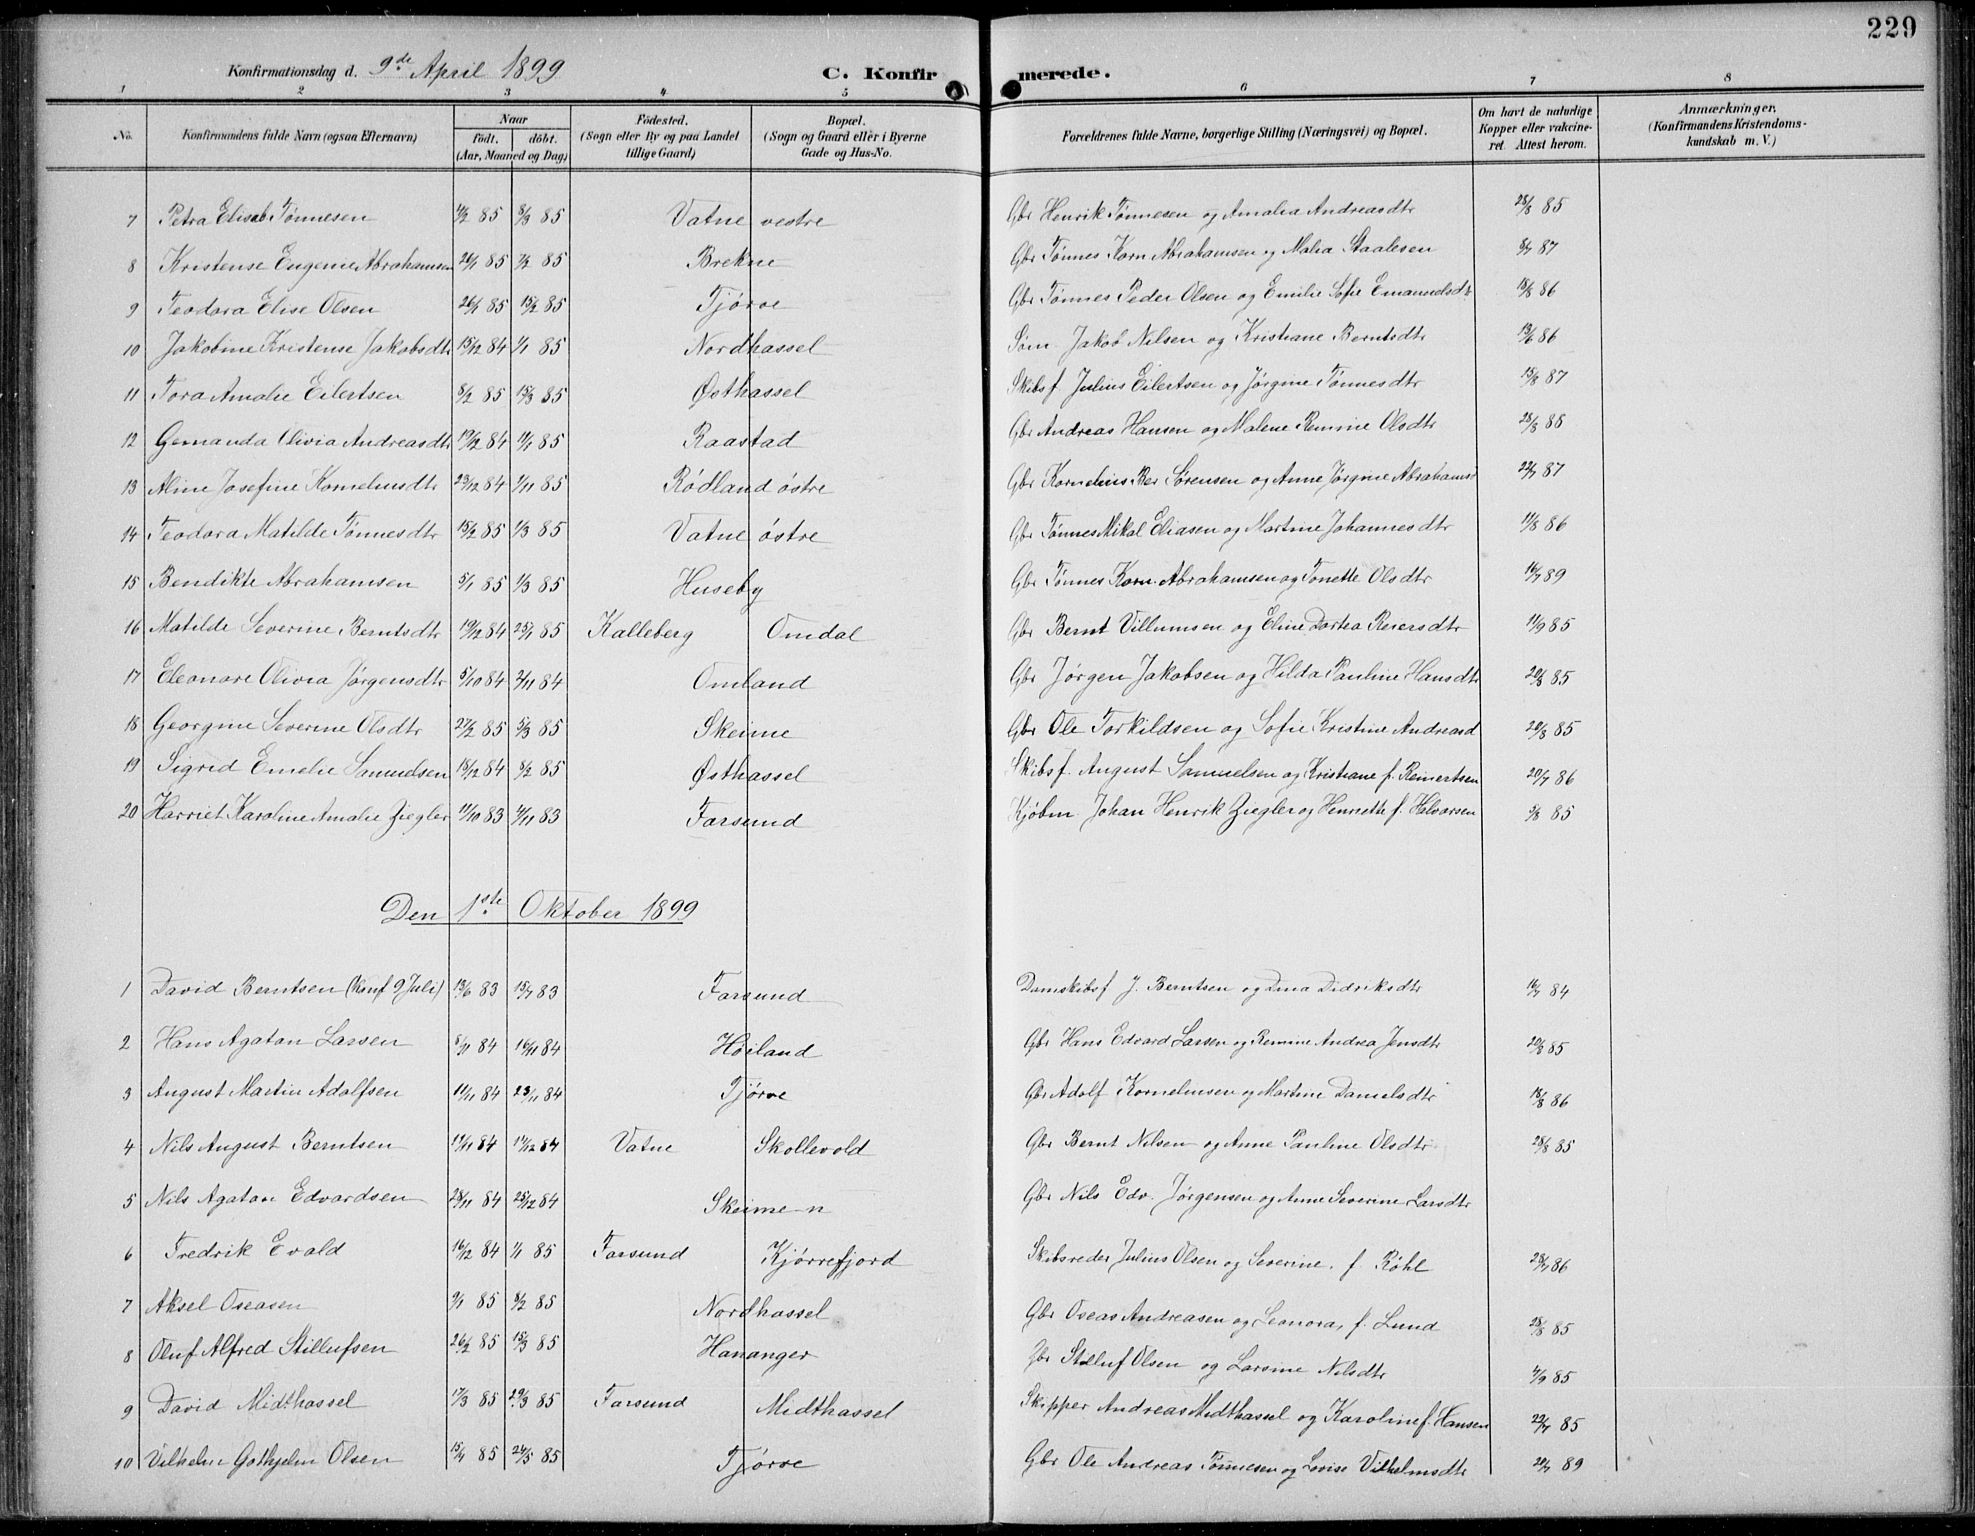 229
Konfirmationsdag d. 9de April 1899 C. Konfirmerede.
1 2 3 4 5 6 7 8
No. Konfirmandens fulde Navn (ogsaa Efternavn) Naar födt. döbt. (Aar, Maaned og Dag) Födested. (Sogn eller By og paa Landet tillige Gaard) Bopæl. (Sogn og Gaard eller i Byerne Gade og Hus-No. Forældrenes fulde Navne, borgerlige Stilling (Næringsvei) og Bopæl. Om havt de naturlige Kopper eller vakcineret. Attest herom. Anmærkninger. (Konfirmandens Kristendomskundskab m. V.)
7 Petra Elisab Tønnesen 85 8/3 85 Vatne vestre Gbr Henrik Tønnesen og Amalia Andreasdtr 28/8 85
8 Kristense Eugenie Abrahamsen 20/1 85 7/2 85 Brekne Gbr Tønnes Korn Abrahamsen og Malia Staalesen 87
9 Teodora Elise Olsen 26/1 85 15/2 85 Tjørve Gbr Tønnes Peder Olsen og Emilie Sofie Emanuelsdtr 18/8 86
10 Jakobine Kristense Jakobsdtr 15/12 84 1/1 85 Nordhassel Søm. Jakob Nilsen og Kristiane Berntsdtr 86
11 Tora Amalie Eilertsen 8/2 85 15/3 85 Østhassel Skibsf. Julius Eilertsen og Jørgine Tønnesdtr 15/8 87
12 Gemanda Olivia Andreasdtr 19/12 84 11/1 85 Raastad Gbr Andreas Hansen og Malene Remine Olsdtr 28/8 86
13 Aline Josefine Kornelinsdtr 23/12 84 1/11 85 Rødland østre Gbr Kornelius Rei Sørensen og Anne Jørgine Abrahamsd 22/7 87
14 Teodora Matilde Tønnesdtr 15/2 85 1/3 85 Vatne østre Gbr Tønnes Mikal Eliasen og Martine Johannesdtr 11/8 86
15 Bendikte Abrahamsen 5/1 85 1/3 85 Huseby Gbr Tønnes Korn. Abrahamsen og Tonette Olsdtr 89
16 Matilde Severine Berntsdtr 19/12 84 25/1 85 Kalleberg Omdal Gbr Bernt Villumsen og Eline Dortea Reiersdtr 11/9 85
17 Eleonore Olivia Jørgensdtr 5/10 84 2/11 84 Omland Gbr Jørgen Jakobsen og Hilda Pauline Hansdtr 20/8 85
18 Georgine Severine Olsdtr 27/2 85 5/3 85 Skeime Gbr Ole Torkildsen og Sofie Kristine Andreasd 20/8 85
19 Sigrid Emelie Samuelsen 18/12 84 8/2 85 Østhassel Skibsf. August Samuelsen og Kristiane f. Reinertsen 20/7 86
20 Harriet Karoline Amalie Ziegler 11/10 83 4/11 83 Farsund Kjøbm Johan Henrik Ziegler og Henriette f. Halvorsen 5/8 85
Den 1ste Oktober 1899
1 David Berntsen (Konf 9 Juli) 13/6 83 15/7 83 Farsund Damskibsf J. Berntsen og Dina Didriksdtr 16/7 84
2 Hans Agaton Larsen 8/11 84 16/11 84 Høiland Gbr Hans Edvard Larsen og Remine Andrea Jensdtr 20/8 85
3 August Martin Adolfsen 11/11 84 23/11 84 Tjørve Gbr Adolf Korneliusen og Martine Danielsdtr 18/8 86
4 Nils August Berntsen 84 14/12 84 Vatne Skollevold Gbr Bernt Nilsen og Anne Pauline Olsdtr 28/8 85
5 Nils Agaton Edvardsen 28/11 84 25/12 84 Skeime n Gbr Nils Edv. Jørgensen og Anne Severine Larsdtr
6 Fredrik Evald 16/12 84 1/1 85 Farsund Kjørrefjord Skibsreder Julius Olsen og Severine f. Röhl 28/7 86
7 Aksel Oseasen 9/1 85 8/2 85 Nordhassel Gbr Oseas Andreasen og Leonora, f. Lund 28/8 85
8 Oluf Alfred Stillufsen 26/2 85 15/3 85 Hananger Gbr Stilluf Olsen og Larsine Nilsdtr 4/9 85
9 David Midthassel 17/3 85 29/3 85 Farsund Midthassel Skipper Andreas Midthassel og Karoline f. Hansen 22/7 85
10 Vilhelm Gothjelm Olsen 15/4 85 24/5 85 Tjørve Gbr Ole Andreas Tønnesen og Lovise Vilhelmsdtr 20/7 89